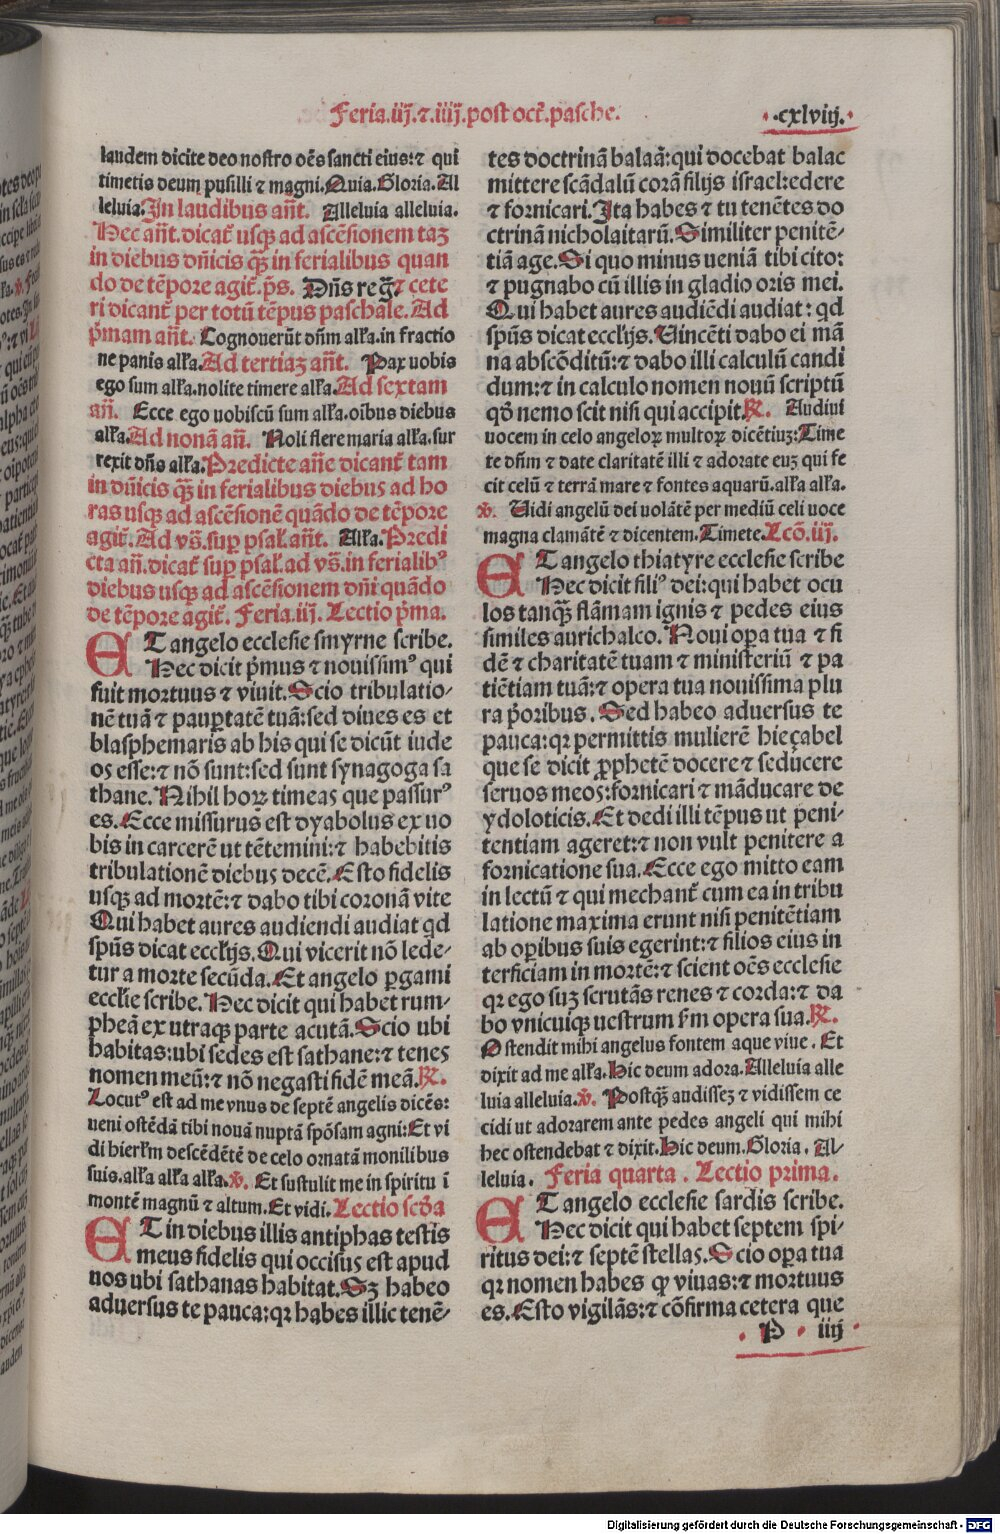 Feria.iij.⁊.iiij.post oct̄.pasche.
.cxlviij.
laudem dicite deo nostro oēs sancti eius:⁊ qui
timetis deum pusilli ⁊ magni.Quia.Gloria.Al
leluia.In laudibus an̄t. Alleluia alleluia.
Hec an̄t.dicat̄ usqꝫ ad ascēsionem taꝫ
in diebus dn̄icis qꝫ̄ in ferialibus quan
do de tēpore agit̄.p̄s. Dn̄s re g̈̄ ⁊ cete
ri dicant̄ per totū tēpus paschale.Ad
p̄mam an̄t. Cognouerūt dn̄m alła.in fractio
ne panis alła.Ad tertiaꝫ an̄t. Pax uobis
ego sum alła.nolite timere alła.Ad sextam
an̄. Ecce ego uobiscū sum alła.oībus diebus
alła.Ad nonā an̄. Noli flere maria alła.sur
rexit dn̄s alła.Predicte an̄e dicant̄ tam
in dn̄icis qꝫ̄ in ferialibus diebus ad ho
ras usqꝫ ad ascēsionē quādo de tēpore
agit̄.Ad vs̄.sup̱ psal.an̄t. Alła.Predi
cta an̄.dicat̄ sup̱ psal.ad vs̄.in ferialibꝰ
diebus usqꝫ ad ascēsionem dn̄i quādo
de tēpore agit̄. Feria.iij. Lectio p̄ma.
ET angelo ecclesie smyrne scribe.
Hec dicit p̄mus ⁊ nouissimꝰ qui
fuit mortuus ⁊ viuit.Scio tribulatio-
nē tuā ⁊ paup̱tatē tuā:sed diues es et
blasphemaris ab his qui se dicūt iude
os esse:⁊ nō sunt:sed sunt synagoga sa
thane.Nihil hoꝝ timeas que passurꝰ
es.Ecce missurus est dyabolus ex uo
bis in carcerē ut tētemini:⁊ habebitis
tribulationē diebus decē.Esto fidelis
usqꝫ ad mortē:⁊ dabo tibi coronā vite
Qui habet aures audiendi audiat qd
spūs dicat eccłijs.Qui vicerit nō lede-
tur a morte secūda.Et angelo p̱gami
eccłie scribe.Hec dicit qui habet rum-
pheā ex utraqꝫ parte acutā.Scio ubi
habitas:ubi sedes est sathane:⁊ tenes
nomen meū:⁊ nō negasti fidē meā.℟.
Locutꝰ est ad me vnus de septē angelis dicēs:
ueni ostēdā tibi nouā nuptā spōsam agni:Et vi
di hierłm descēdētē de celo ornatā monilibus
suis.alła alła alła.℣. Et sustulit me in spiritu ī
montē magnū ⁊ altum.Et vidi.Lectio scd̄a
ET in diebus illis antiphas testis
meus fidelis qui occisus est apud
nos ubi sathanas habitat.Sꝫ habeo
aduersus te pauca:qꝛ habes illic tenē-
tes doctrinā balaā:qui docebat balac
mittere scādalū corā filijs israel:edere
⁊ fornicari.Ita habes ⁊ tu tenētes do
ctrinā nicholaitarū.Similiter penitē-
tiā age.Si quo minus ueniā tibi cito:
⁊ pugnabo cū illis in gladio oris mei.
Qui habet aures audiēdi audiat:qd
spūs dicat eccłijs.Vincēti dabo ei mā
na abscōditū:⁊ dabo illi calculū candi
dum:⁊ in calculo nomen nouū scriptū
qd̄ nemo scit nisi qui accipit.℟. Audiui
uocem in celo angeloꝝ multoꝝ dicētiuꝫ:Time
te dn̄m ⁊ date claritatē illi ⁊ adorate euꝫ qui fe
cit celū ⁊ terrā mare ⁊ fontes aquarū.alła alła.
℣. Vidi angelū dei uolātē per mediū celi uoce
magna clamātē ⁊ dicentem.Timete.Lcō.iij.
ET angelo thiatyre ecclesie scribe
Hec dicit filiꝰ dei:qui habet ocu
los tanqꝫ̄ flāmam ignis ⁊ pedes eius
similes aurichalco.Noui op̱a tua ⁊ fi
dē ⁊ charitatē tuam ⁊ ministeriū ⁊ pa
tiētiam tuā:⁊ opera tua nouissima plu
ra p̄oribus.Sed habeo aduersus te
pauca:qꝛ permittis mulierē hieçabel
que se dicit ꝓphetē docere ⁊ seducere
seruos meos:fornicari ⁊ māducare de
ydoloticis.Et dedi illi tēpus ut peni-
tentiam ageret:⁊ non vult penitere a
fornicatione sua.Ecce ego mitto eam
in lectū ⁊ qui mechant̄ cum ea in tribu
latione maxima erunt nisi penitētiam
ab op̱ibus suis egerint:⁊ filios eius in
terficiam in mortē:⁊ scient oēs ecclesie
qꝛ ego suꝫ scrutās renes ⁊ corda:⁊ da
bo vnicuiqꝫ uestrum fm̄ opera sua.℟.
Ostendit mihi angelus fontem aque viue. Et
dixit ad me alła.Hic deum adora.Alleluia alle
luia alleluia.℣. Postqꝫ̄ audisseꝫ ⁊ vidissem ce
cidi ut adorarem ante pedes angeli qui mihi
hec ostendebat ⁊ dixit.Hic deum.Gloria. Al-
leluia. Feria quarta. Lectio prima.
ET angelo ecclesie sardis scribe.
Hec dicit qui habet septem spi-
ritus dei:⁊ septē stellas.Scio op̱a tua
qꝛ nomen habes ꝙ viuas:⁊ mortuus
es.Esto vigilās:⁊ cōfirma cetera que
P iiij
Digitalisierung gefördert durch die Deutsche Forschungsgemeinschaft - DFG